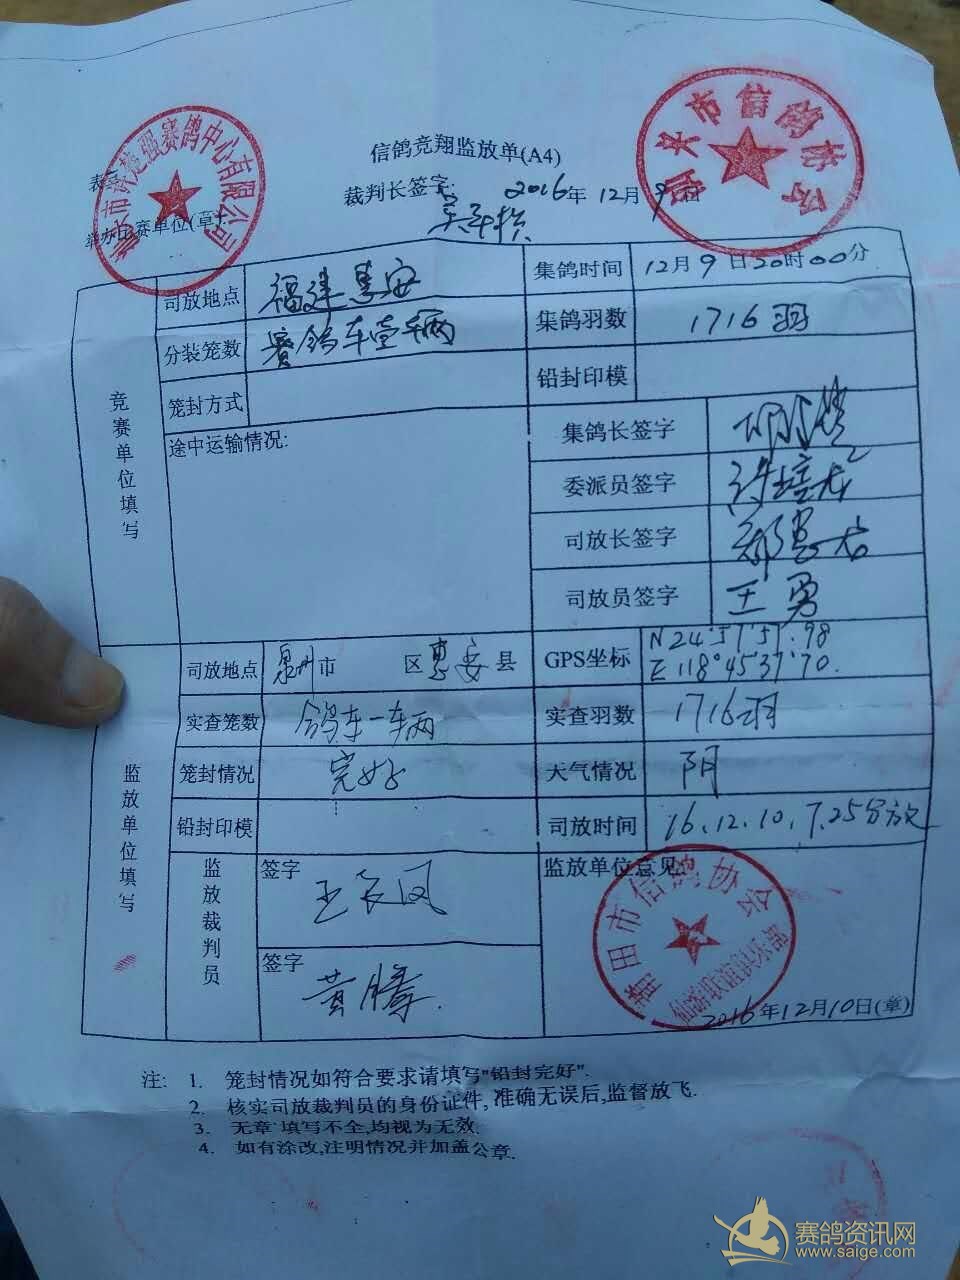 信鸽竞翔监放单(A4)
裁判长签字: 2016年12月9日
举办比赛单位(章)
市信鸽协会
强赛鸽中心有限公司
竞赛单位填写
司放地点 福建惠安 集鸽时间 12月9日20时00分
分装笼数 赛鸽车壹辆 集鸽羽数 1716羽
笼封方式 铅封印模
途中运输情况: 集鸽长签字
委派员签字 许培龙
司放长签字
司放员签字 王勇
监放单位填写
司放地点 泉州市 区惠安县 GPS坐标 N24°57'57.98 E118°45'37'70.
实查笼数 鸽车一车辆 实查羽数 1716羽
笼封情况 完好 天气情况 阴
铅封印模 司放时间 16.12.10.7.25分放
监放裁判员 签字 王长风 监放单位意见
签字 黄腾
莆田市信鸽协会
2016年12月10日(章)
注: 1. 笼封情况如符合要求请填写"铅封完好".
2. 核实司放裁判员的身份证件,准确无误后,监督放飞.
3. 无章 填写不全,均视为无效.
4. 如有涂改,注明情况并加盖公章.
赛鸽资讯网
www.saige.com